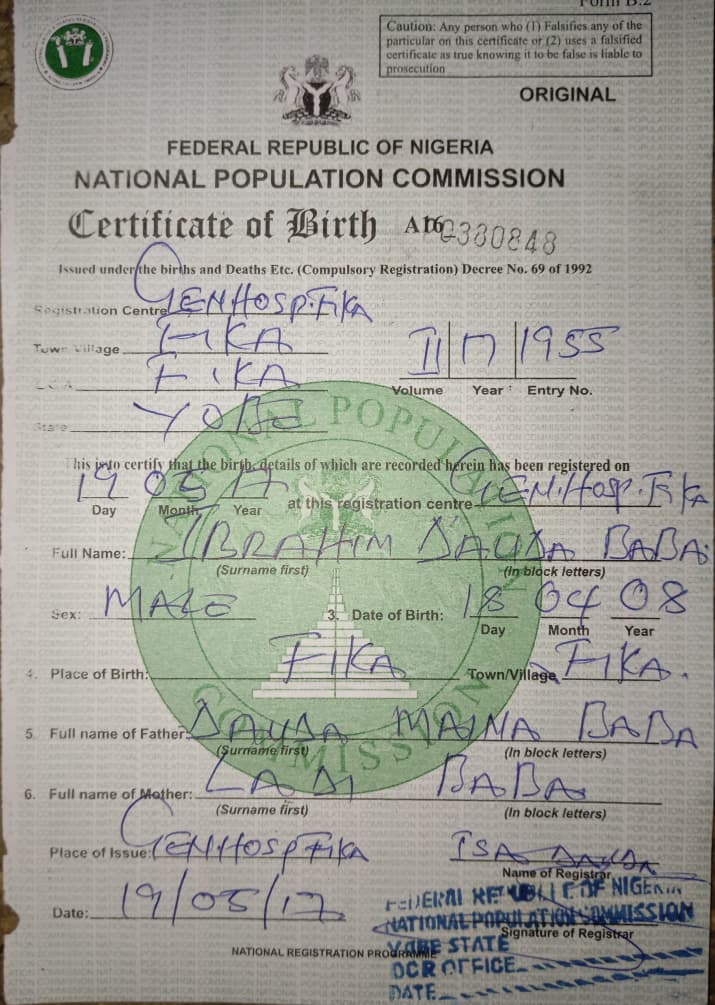 Form B.2
Caution: Any person who (1) Falsifies any of the
particular on this certificate or (2) uses a falsified
certificate as true knowing it to be false is liable to
prosecution
ORIGINAL
FEDERAL REPUBLIC OF NIGERIA
NATIONAL POPULATION COMMISSION
Certificate of Birth A16 0380848
Issued under the births and Deaths Etc. (Compulsory Registration) Decree No. 69 of 1992
Registration Centre GEN HOSP. FIKA
Town Village FIKA
II 17 1955
L.G.A. FIKA
Volume Year Entry No.
State YOBE
NATIONAL POPULATION COMMISSION
This is to certify that the birth, details of which are recorded herein has been registered on
19 05 17 at this registration centre GEN. HOSP. FIKA
Day Month Year
Full Name: IBRAHIM DAUDA BABA
(Surname first) (In block letters)
Sex: MALE 3. Date of Birth: 18 04 08
Day Month Year
4. Place of Birth: FIKA Town/Village FIKA.
5. Full name of Father: DAUDA MAINA BABA
(Surname first) (In block letters)
6. Full name of Mother: LADI BABA
(Surname first) (In block letters)
Place of Issue: GEN HOSP FIKA ISA DAUDA
Name of Registrar
Date: 19/05/17
FEDERAL REPUBLIC OF NIGERIA
NATIONAL POPULATION COMMISSION
Signature of Registrar
YOBE STATE
NATIONAL REGISTRATION PROGRAMME
DCR OFFICE
DATE